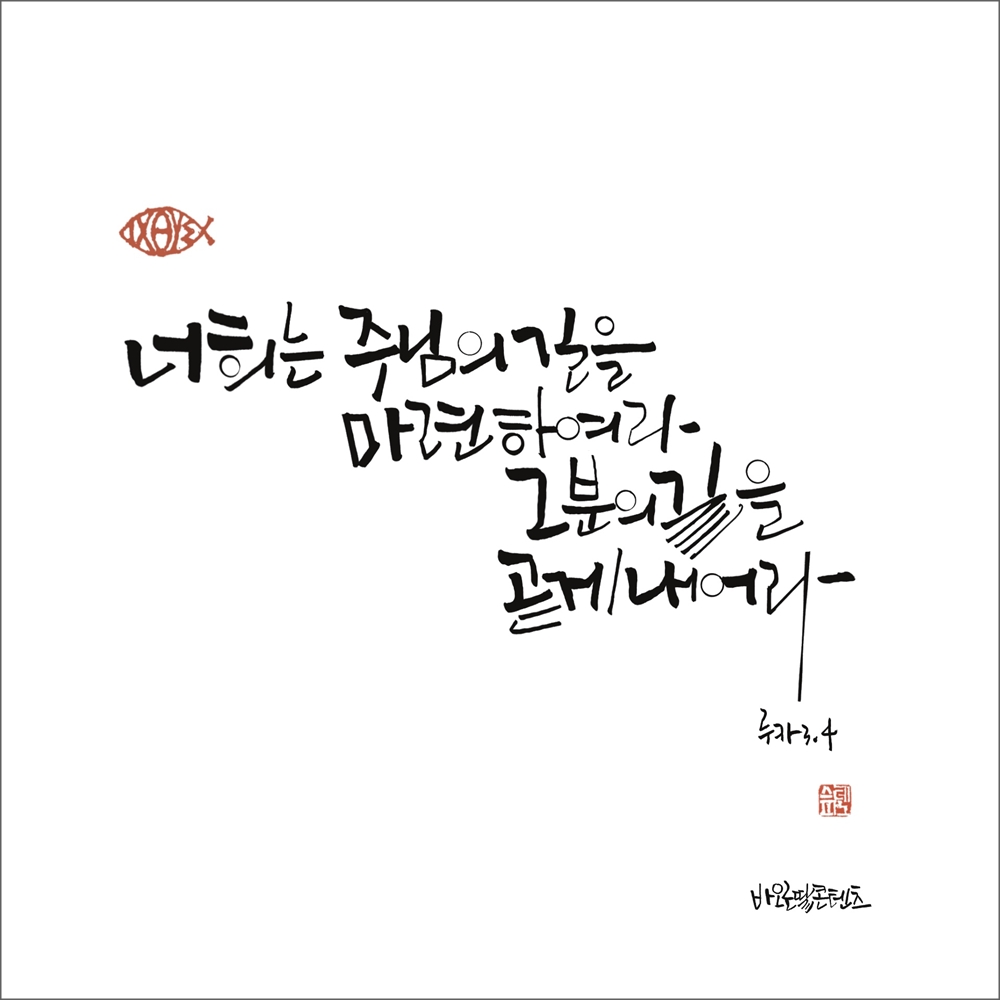 ΙΧΘΥΣ
너희는 주님의 길을
마련하여라
그분의 길을
곧게 내어라
루카 3.4
바오로딸콘텐츠